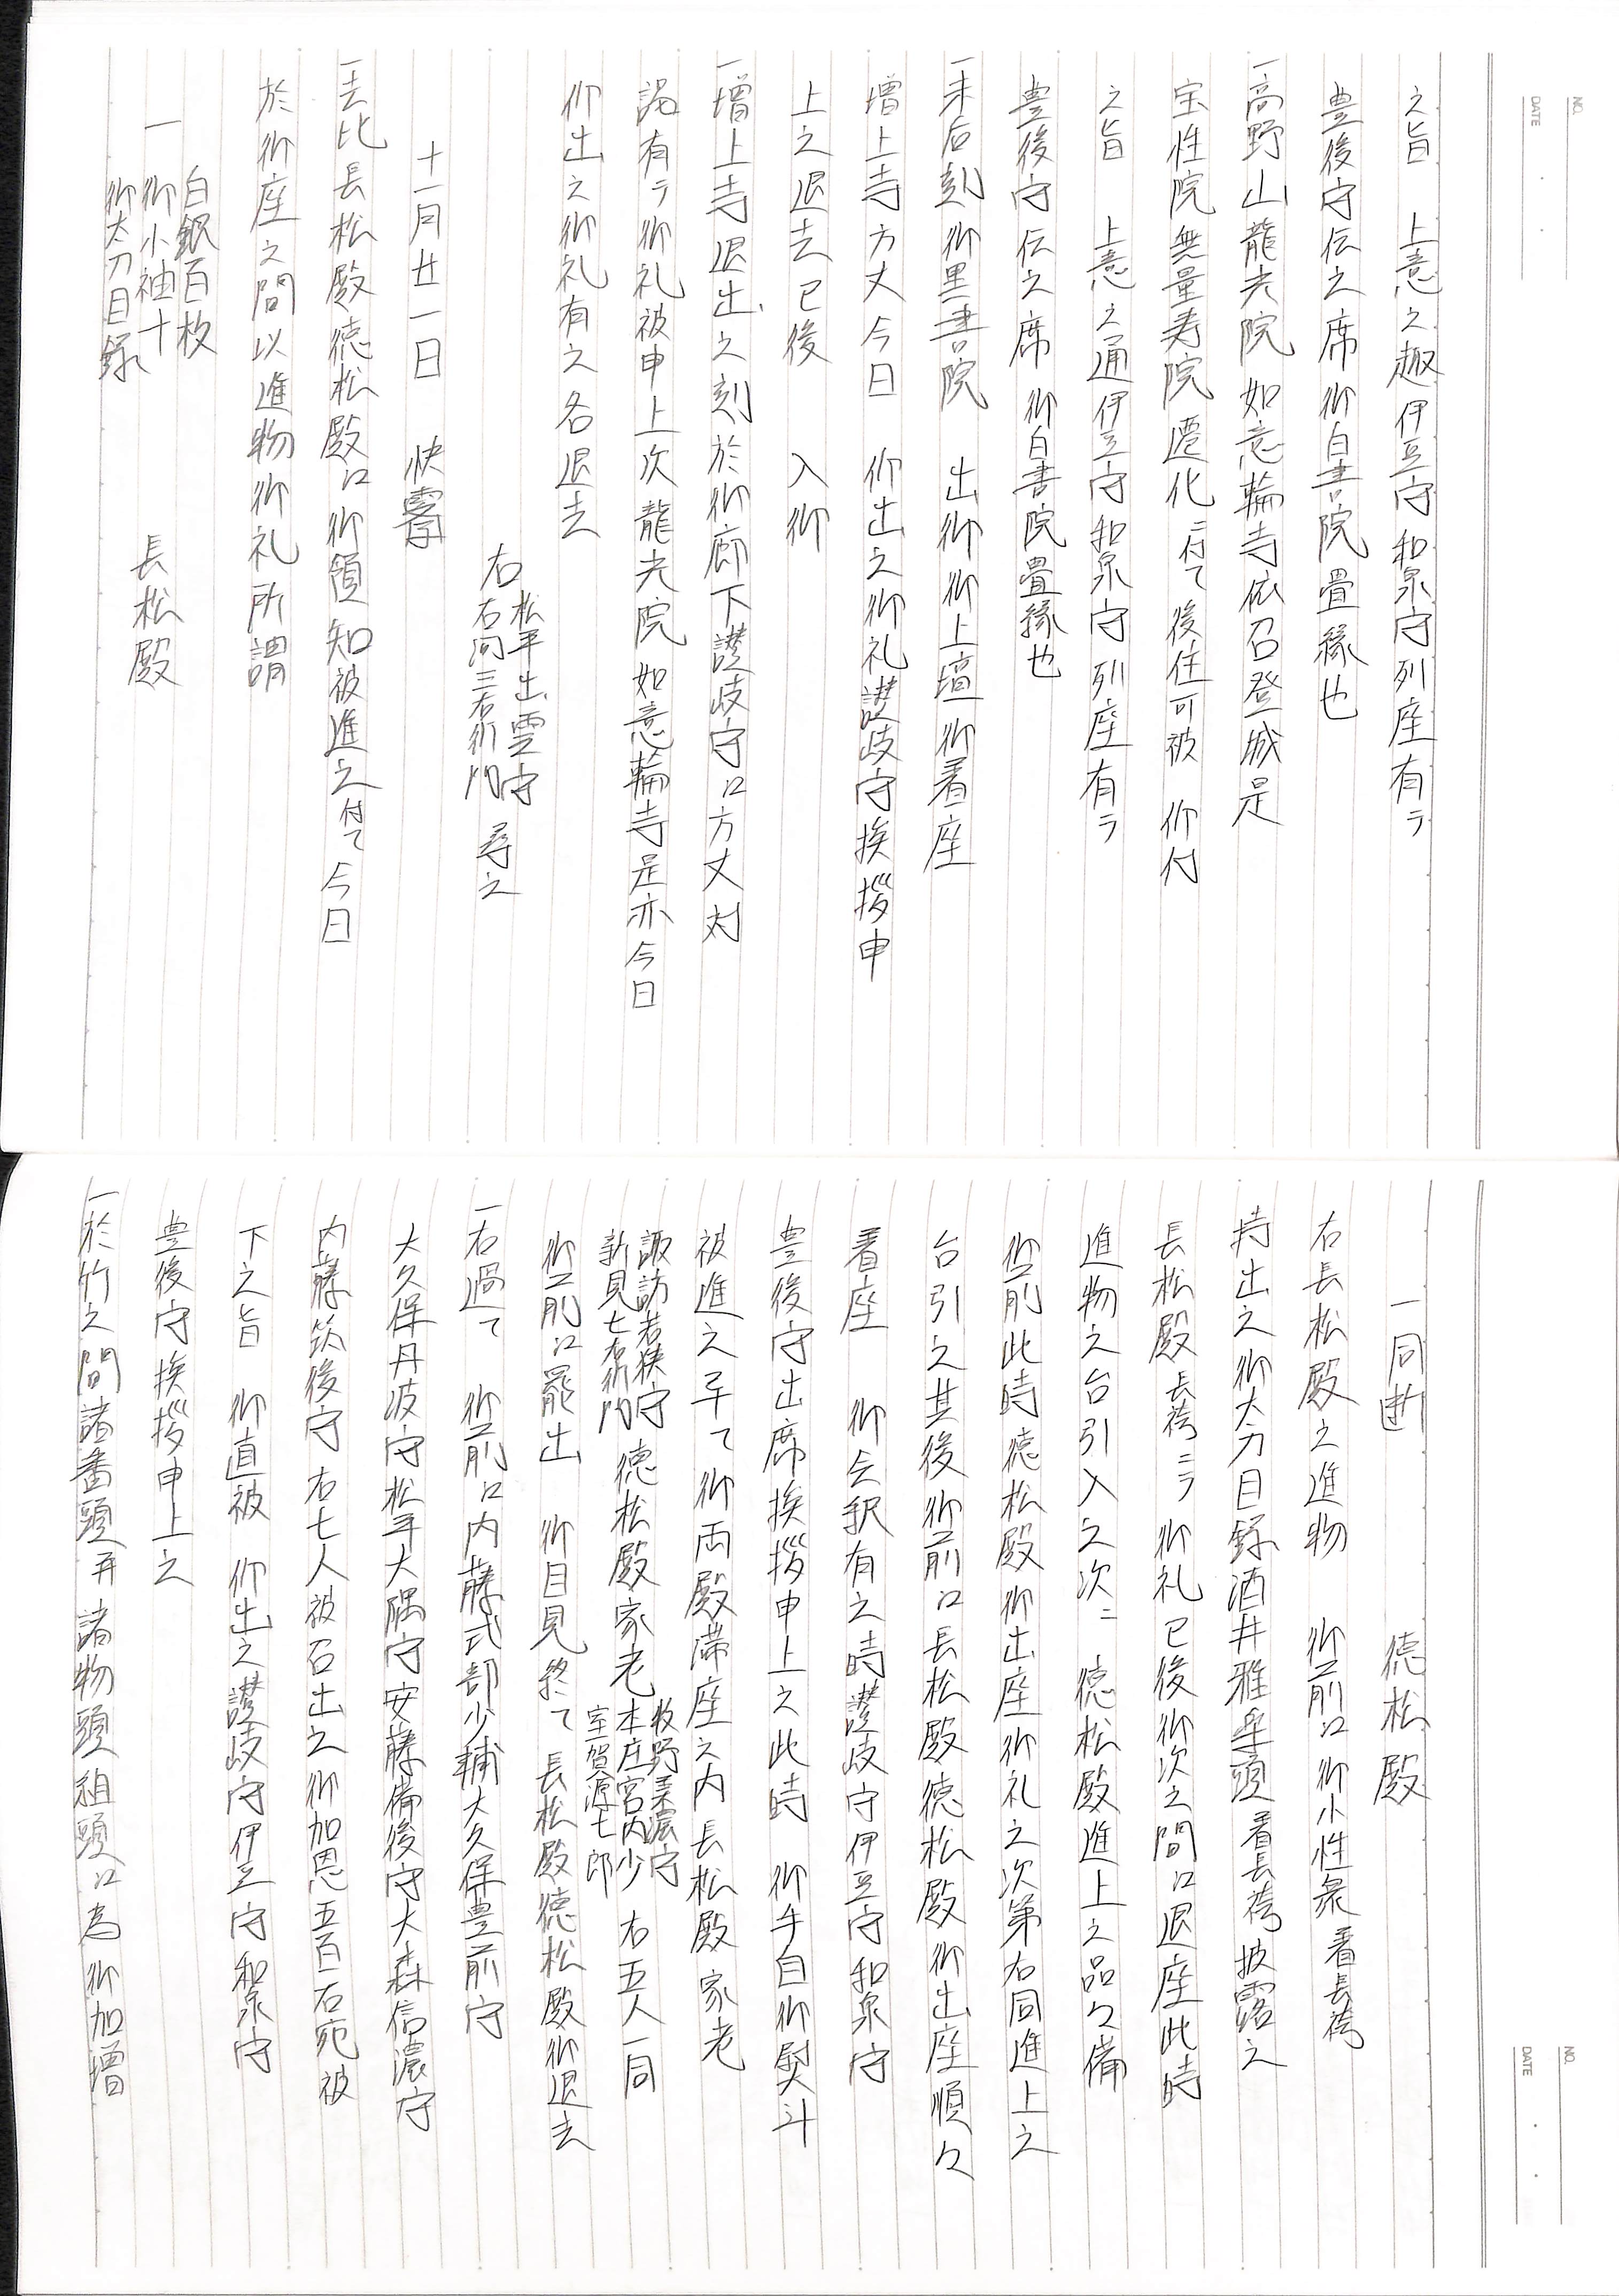 NO.
DATE
之旨　上意之趣伊豆守和泉守列座有テ
豊後守伝之席御白書院畳縁也
一高野山龍光院如意輪寺依召登城是
宝性院無量寿院遷化ニ付て後住可被　仰付
之旨　上意之通伊豆守和泉守列座有テ
豊後守伝之席御白書院畳縁也
一未后刻御黒書院　出御御上壇御着座
増上寺方丈今日　仰出之御礼讃岐守挨拶申
上之退去已後　入御
一増上寺退出之刻於御廊下讃岐守江方丈対
謁有テ御礼被申上次龍光院如意輪寺是亦今日
仰出之御礼有之各退去
右 松平出雲守
右同三右衛門 尋之
十一月廿一日　快霽
一去比長松殿徳松殿江御領知被進之付て今日
於御座之間以進物御礼所謂
白銀百枚
一　御小袖十　長松殿
御太刀目録
NO.
DATE
一同断　徳松殿
右長松殿之進物　御前江御小性衆着長袴
持出之御太刀目録酒井雅楽頭着長袴披露之
長松殿長袴ニテ　御礼已後御次之間江退座此時
進物之台引入之次ニ　徳松殿進上之品々備
御前此時徳松殿御出座御礼之次第右同進上之
台引之其後御前江長松殿徳松殿御出座順々
着座　御会釈有之時讃岐守伊豆守和泉守
豊後守出席挨拶申上之此時　御手自御熨斗
被進之畢て御両殿滞座之内長松殿家老
諏訪若狭守
新見七右衛門 徳松殿家老 牧野美濃守
本庄宮内少
室賀源七郎 右五人一同
御前江罷出　御目見終て長松殿徳松殿御退去
一右過て　御前江内藤式部少輔大久保豊前守
大久保丹波守松平大隅守安藤備後守大森信濃守
内藤筑後守右七人被召出之御加恩五百石宛被
下之旨　御直被　仰出之讃岐守伊豆守和泉守
豊後守挨拶申上之
一於竹之間諸番頭并諸物頭組頭江為御加増